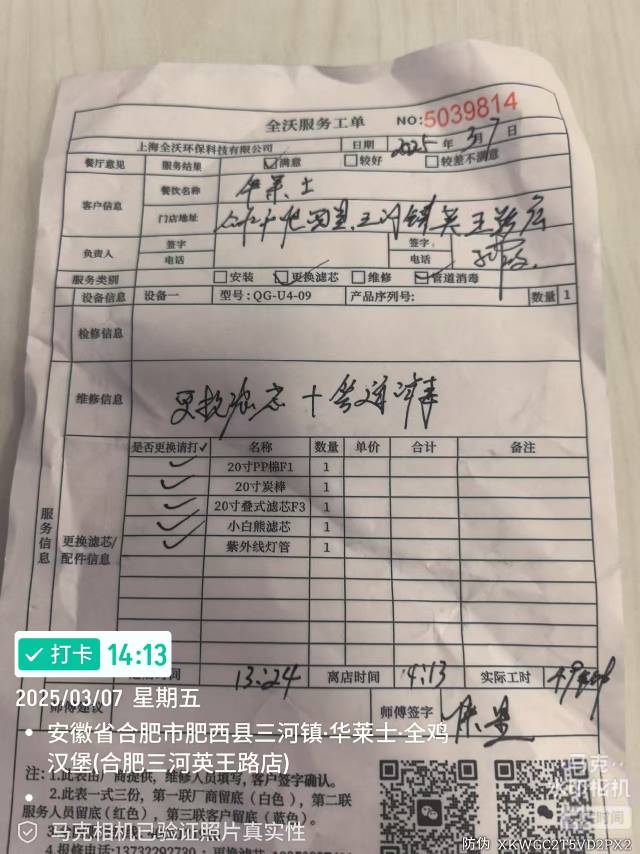 全沃服务工单 NO:5039814
上海全沃环保科技有限公司 日期 2025 年 3月7日
餐厅意见 服务结果 ☑满意 □较好 □较差不满意
客户信息 餐饮名称 华莱士
门店地址 三河镇英王路店
负责人 签字 签字
电话 电话
服务类别 □安装 ☑更换滤芯 □维修 ☑管道消毒
设备信息 设备一 型号:QG-U4-09 产品序列号: 数量 1
检修信息
维修信息 更换滤芯+管道消毒
服务信息 更换滤芯/配件信息
是否更换请打✓ 名称 数量 单价 合计 备注
✓ 20寸PP棉F1 1
✓ 20寸炭棒 1
✓ 20寸叠式滤芯F3 1
✓ 小白熊滤芯 1
✓ 紫外线灯管 1
13:24 离店时间 14:13 实际工时 49分钟
师傅签字
✓打卡 14:13
2025/03/07 星期五
安徽省合肥市肥西县三河镇·华莱士·全鸡
汉堡(合肥三河英王路店)
注: 1.此表由厂商提供, 维修人员填写, 客户签字确认。
2.此表一式三份, 第一联厂商留底(白色), 第二联
服务人员留底(红色), 第三联客户留底(蓝色)。
4.报修电话:13732292730
马克相机已验证照片真实性
防伪 XKWGC2T5VD2PX2